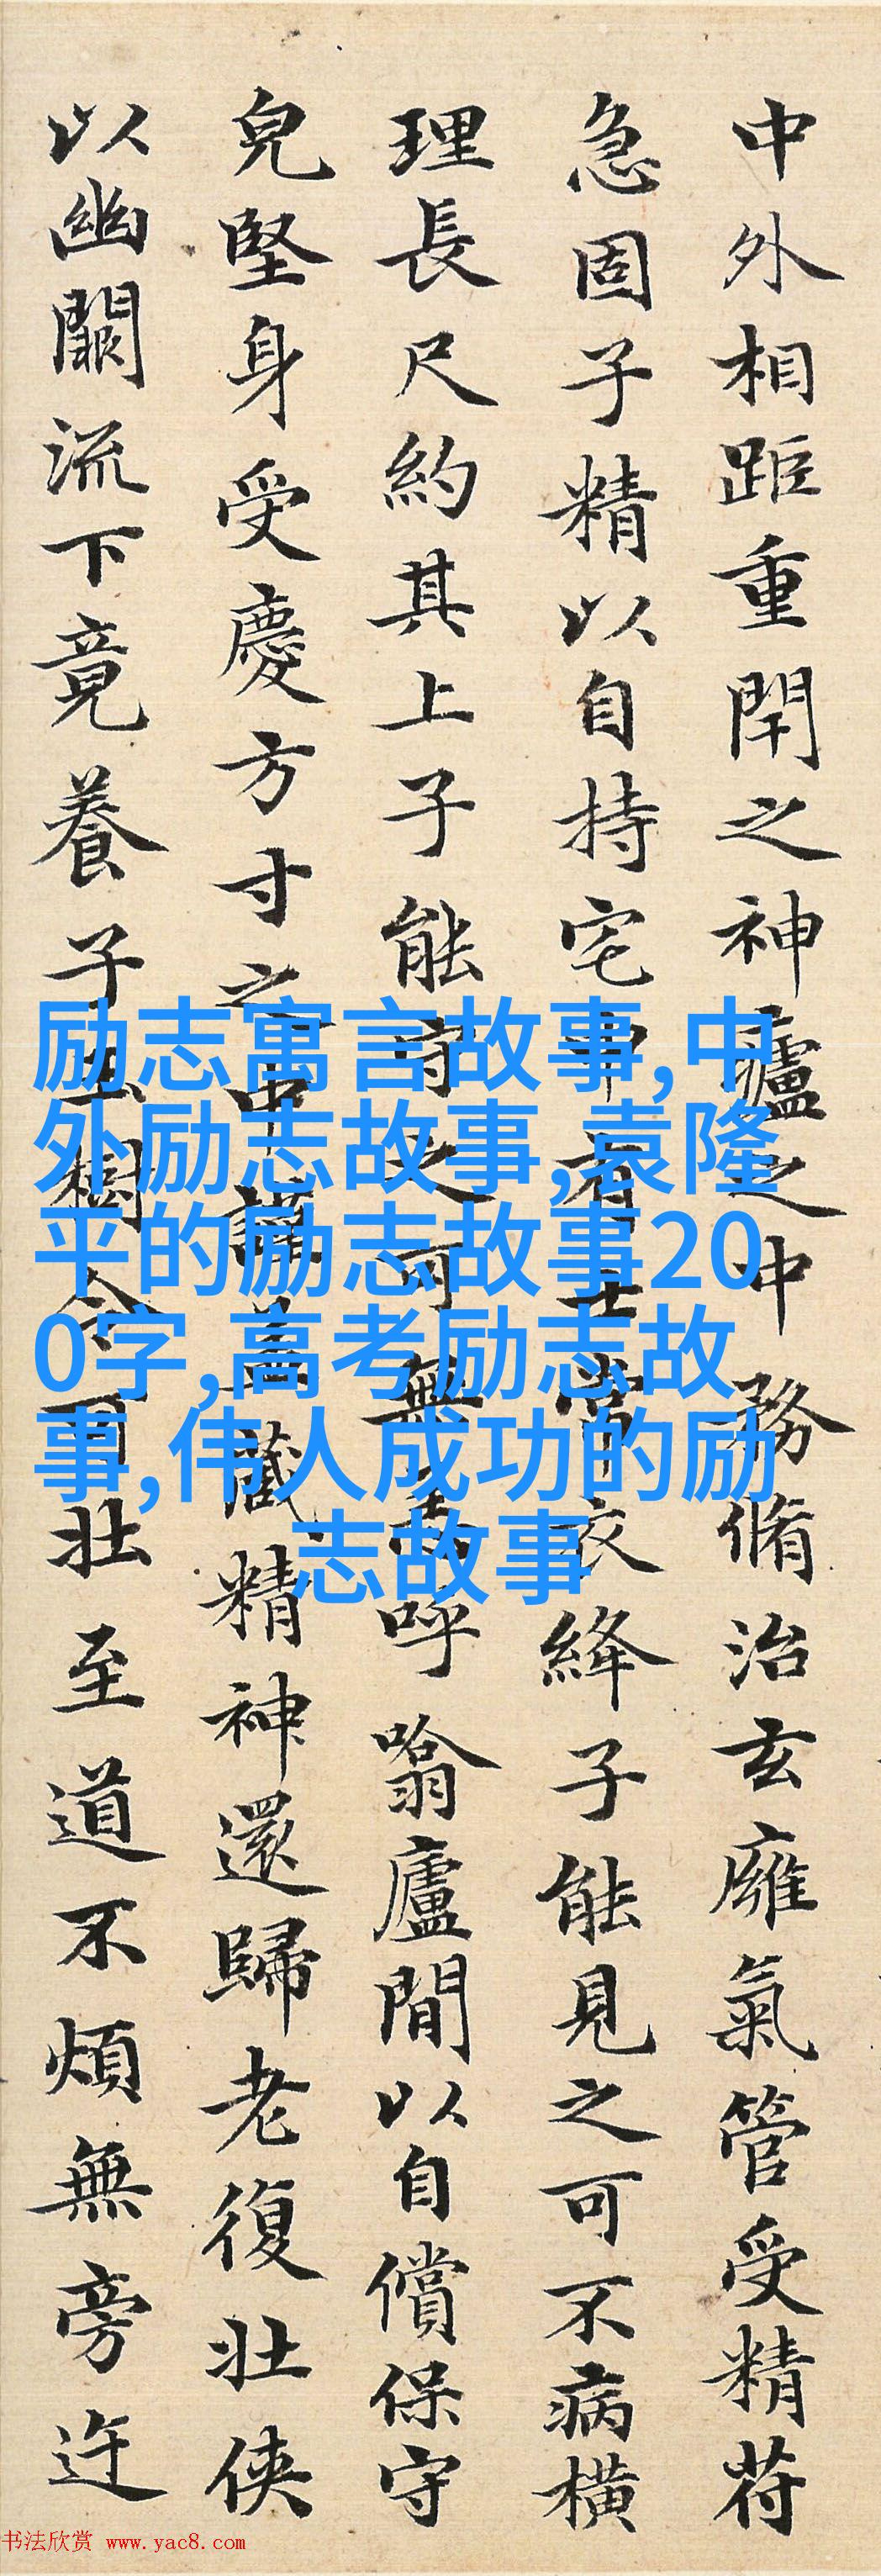 中外相距重閉之神廬之中務脩治玄癰氣管受精苻
急固子精以自持宅中有士常衣絳子能見之可不病橫
理長尺約其上子能守之可無恙呼噏廬間以自償保守
皃堅身受慶方寸之中謹蓋藏精神還歸老復壯俠
以幽闕流下竟養子玉樹令可壯至道不煩無旁迕
励志寓言故事,中
外励志故事,袁隆
平的励志故事20
0字,高考励志故
事,伟人成功的励
志故事
书法欣赏 www.yac8.com